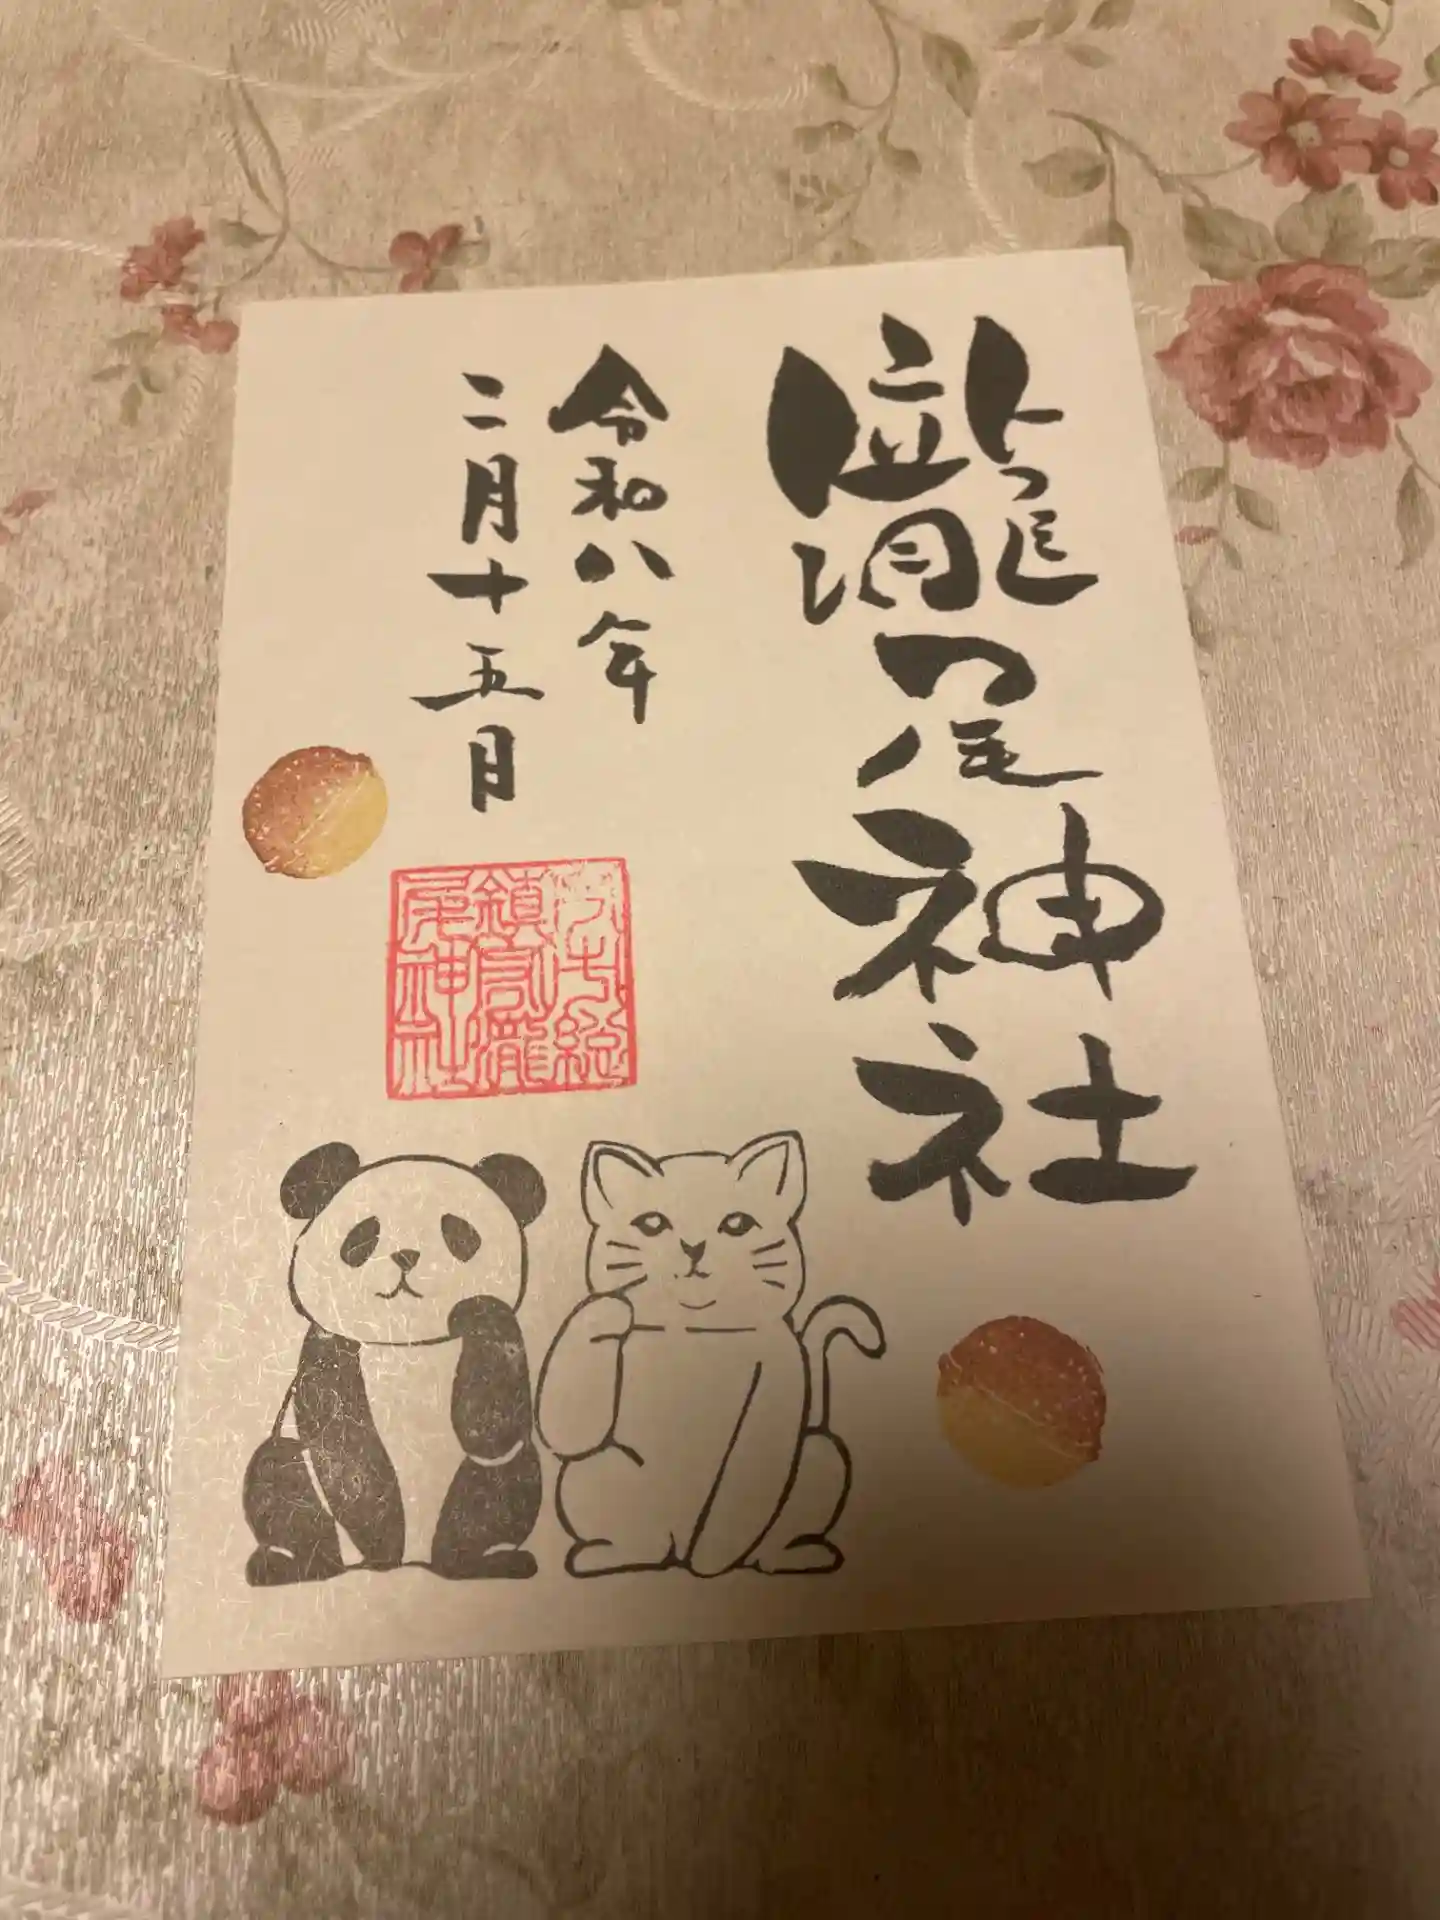 瀧尾神社
令和八年
二月十五日
鎮宮瀧
尾神社